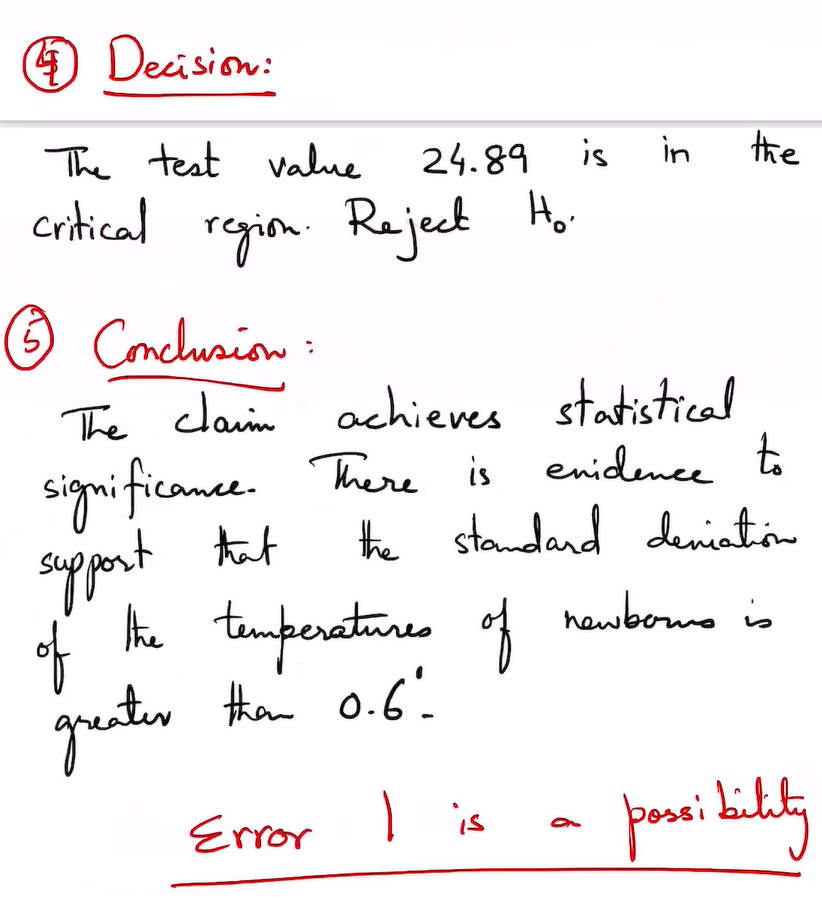 ④ Decision:
The test value 24.89 is in the
critical region. Reject H₀.
⑤ Conclusion:
The claim achieves statistical
significance. There is evidence to
support that the standard deviation
of the temperatures of newborns is
greater than 0.6°.
Error I is a possibility